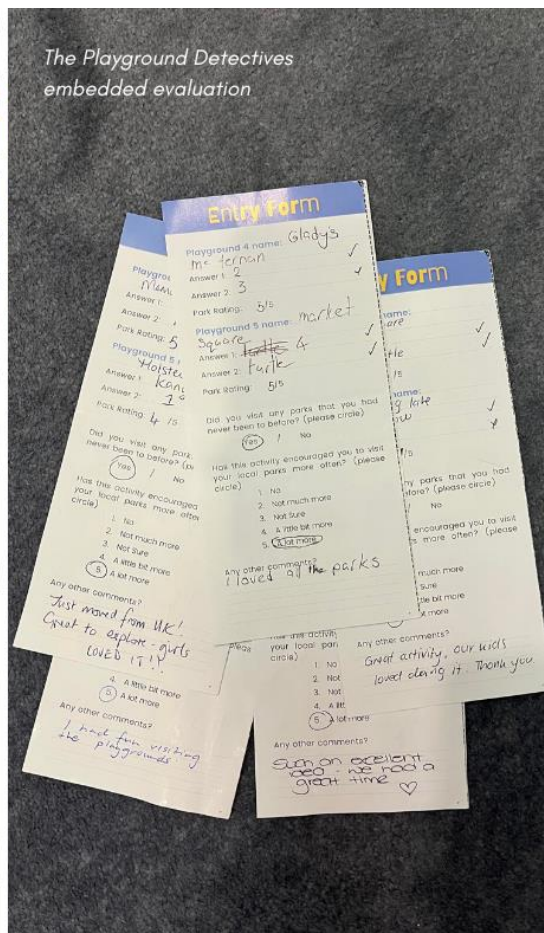 The Playground Detectives
embedded evaluation
Entry Form
Playground 4 name: Gladys
Mc ternan
Answer 1: 2
Answer 2: 3
Park Rating: 5/5
Playground 5 name: market
Square
Answer 1: 4
Answer 2: turtle
Park Rating: 5/5
Did you visit any parks that you had
never been to before? (please circle)
Yes / No
Has this activity encouraged you to visit
your local parks more often? (please
circle)
1. No
2. Not much more
3. Not Sure
4. A little bit more
5. A lot more
Any other comments?
I loved all the parks
Answer 1:
Answer 2:
Park Rating: 5
Playground 5
Answer 1:
Answer 2:
Park Rating: 4 /5
Did you visit any park
never been to before?
Yes / No
Has this activity encouraged
your local parks more often
circle)
1. No
2. Not much more
3. Not Sure
4. A little bit more
5. A lot more
Any other comments?
Just moved from UK!
Great to explore - girls
LOVED IT!!
y Form
name:
/5
name:
/5
any parks that you had
before? (please circle)
/ No
encouraged you to visit
more often? (please
much more
Sure
little bit more
lot more
Any other comments?
Great activity, our kids
loved doing it. Thank you
4. A little bit more
5. A lot more
Any other comments?
I had fun visiting
the playgrounds
your local par
circle)
1. No
2. Not
3. Not
4. A litt
5. A lot more
Any other comments?
Such an excellent
idea - we had a
great time